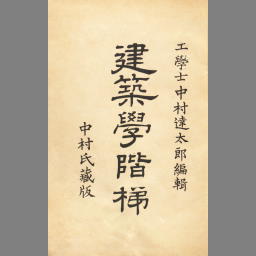 工學士中村達太郎編輯
建築學階梯
中村氏藏版